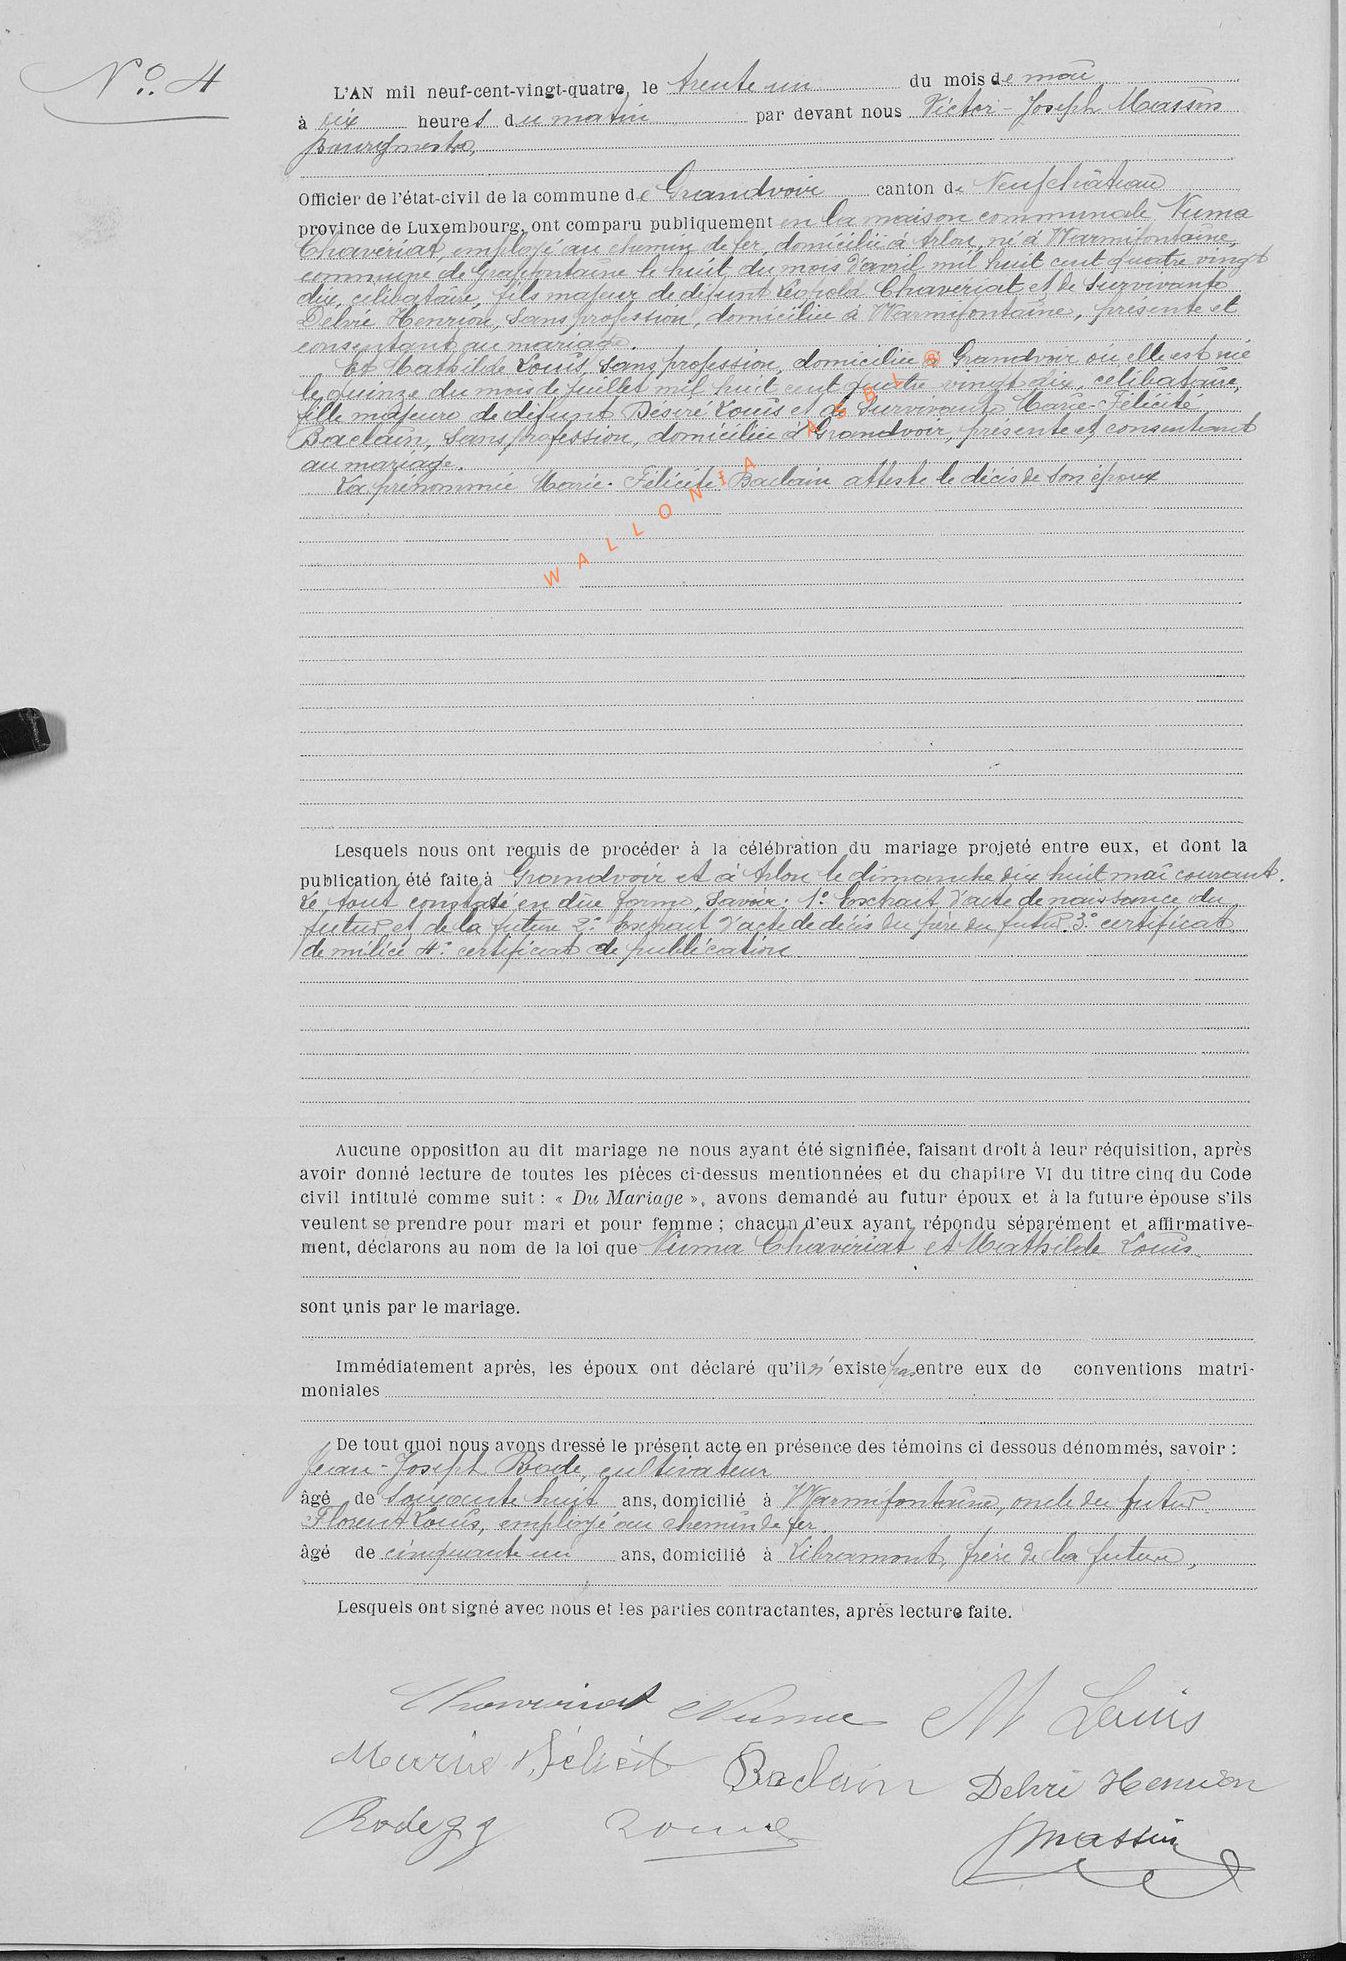 N° 4
L'AN mil neuf-cent-vingt-quatre, le trente un du mois de mai
à dix heures du matin par devant nous Victor-Joseph Masson
Bourgmestre,
Officier de l'état-civil de la commune de Grandvoir canton de Neufchâteau
province de Luxembourg, ont comparu publiquement en la maison communale Numa
Chavériat, employé au chemin de fer, domicilié à Arlon, né à Warmifontaine,
commune de Grapfontaine le huit du mois d'avril mil huit cent quatre vingt
dix, célibataire, fils majeur de défunt Léopold Chavériat et de survivante
Henrion, sans profession, domiciliée à Warmifontaine, présente et
consentant au mariage.
Et Mathilde Louis, sans profession, domiciliée à Grandvoir où elle est née
le quinze du mois de juillet mil huit cent quatre vingt dix, célibataire,
fille majeure de défunt Désiré Louis et de survivante Marie-Félicité
Baclain, sans profession, domiciliée à Grandvoir, présente et consentant
au mariage.
La prénommée Marie-Félicité Baclain atteste le décès de son époux
WALLONIA ASBL ®
Lesquels nous ont requis de procéder à la célébration du mariage projeté entre eux, et dont la
publication été faite à Grandvoir et à Arlon le dimanche dix huit mai courant.
Le tout constaté en due forme, savoir: 1° Extrait d'acte de naissance du
futur et de la future 2° Extrait d'acte de décès du père du futur. 3° certificat
de milice 4° certificat de publication
Aucune opposition au dit mariage ne nous ayant été signifiée, faisant droit à leur réquisition, après
avoir donné lecture de toutes les pièces ci-dessus mentionnées et du chapitre VI du titre cinq du Code
civil intitulé comme suit : « Du Mariage », avons demandé au futur époux et à la future épouse s'ils
veulent se prendre pour mari et pour femme ; chacun d'eux ayant répondu séparément et affirmative-
ment, déclarons au nom de la loi que Numa Chavériat et Mathilde Louis
sont unis par le mariage.
Immédiatement après, les époux ont déclaré qu'il n'existe pas entre eux de conventions matri-
moniales
De tout quoi nous avons dressé le présent acte en présence des témoins ci dessous dénommés, savoir :
Jean-Joseph Rode, cultivateur
âgé de soixante huit ans, domicilié à Warmifontaine, oncle du futur
Florent Louis, employé au chemin de fer.
âgé de cinquante un ans, domicilié à Libramont, frère de la future,
Lesquels ont signé avec nous et les parties contractantes, après lecture faite.
Chavériat Numa M Louis
Marie Félicité Baclain Henrion
Rode Louis
Masson